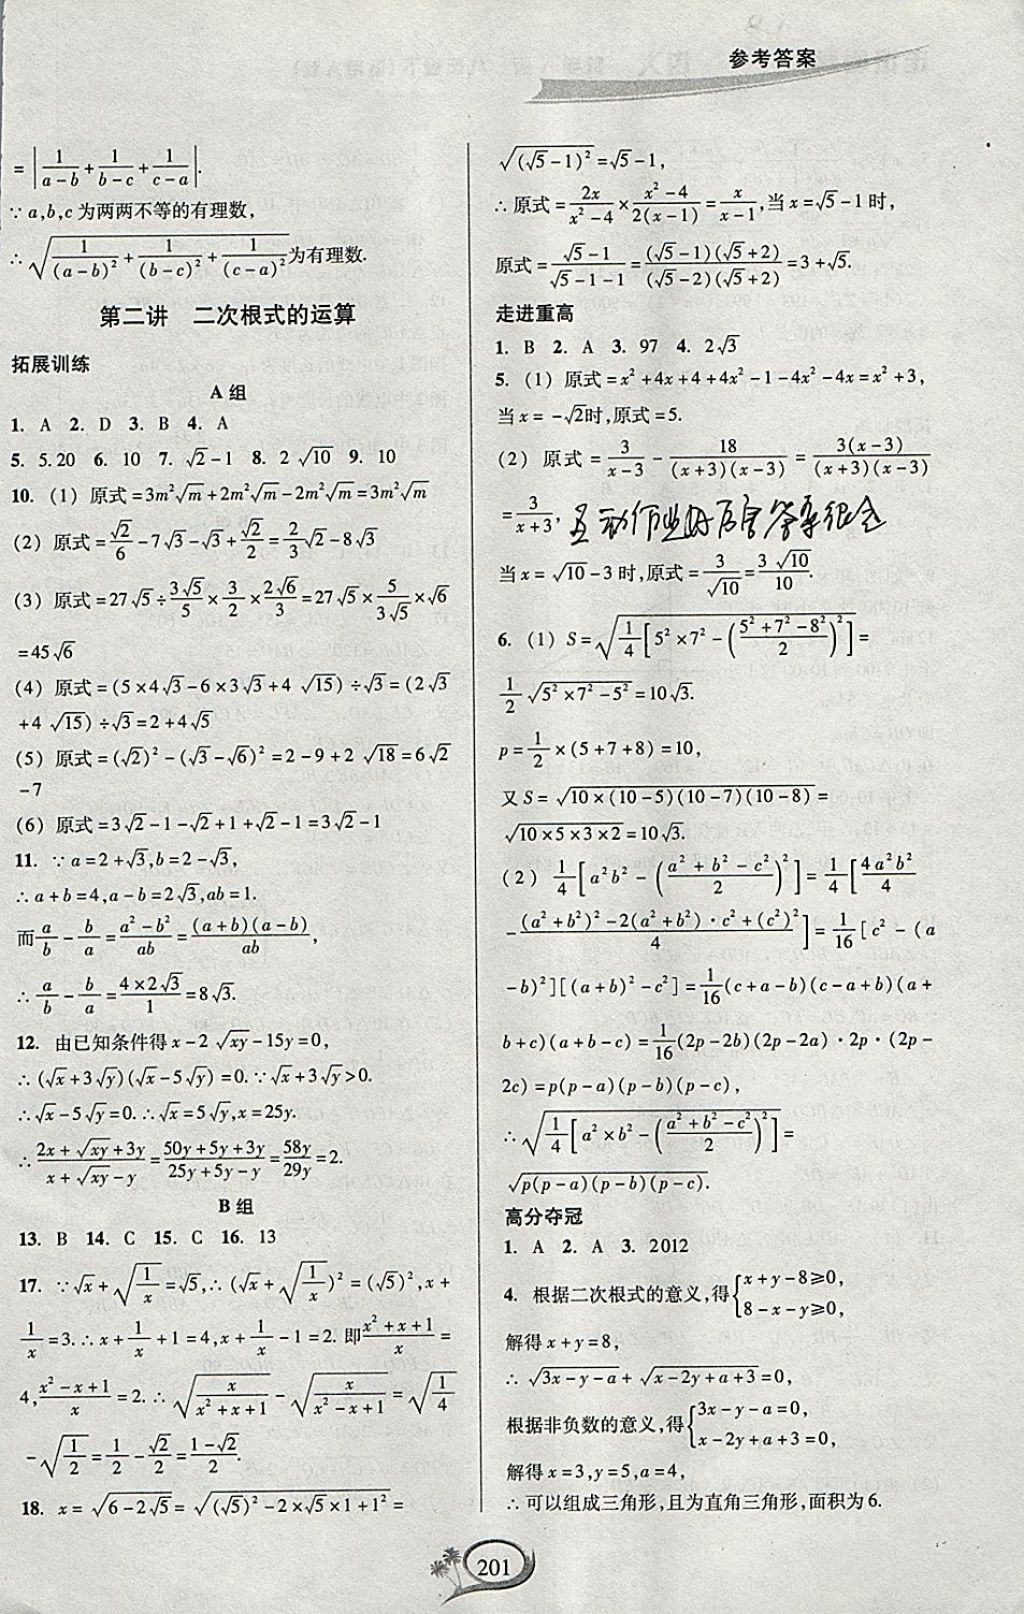 参考答案
= |1/(a-b) + 1/(b-c) + 1/(c-a)|.
∵ a,b,c 为两两不等的有理数,
∴ √(1/(a-b)² + 1/(b-c)² + 1/(c-a)²) 为有理数.
第二讲 二次根式的运算
拓展训练
A 组
1. A 2. D 3. B 4. A
5. 5.20 6. 10 7. √2-1 8. 2√10 9. 10
10. (1) 原式=3m²√m+2m²√m-2m²√m=3m²√m
(2) 原式=√2/6-7√3-√3+√2/2=2/3√2-8√3
(3) 原式=27√5÷3√5/5×3/2×2√6/3=27√5×5/3√5×√6
=45√6
(4) 原式=(5×4√3-6×3√3+4√15)÷√3=(2√3
+4√15)÷√3=2+4√5
(5) 原式=(√2)²-(√3-√6)²=2-9+2√18=6√2
-7
(6) 原式=3√2-1-√2+1+√2-1=3√2-1
11. ∵a=2+√3,b=2-√3,
∴a+b=4,a-b=2√3,ab=1.
而a/b-b/a=(a²-b²)/ab=(a+b)(a-b)/ab,
∴a/b-b/a=4×2√3/1=8√3.
12. 由已知条件得 x-2√xy-15y=0,
∴(√x+3√y)(√x-5√y)=0.∵√x+3√y>0.
∴√x-5√y=0.∴√x=5√y,x=25y.
∴(2x+√xy+3y)/(x+√xy-y)=(50y+5y+3y)/(25y+5y-y)=58y/29y=2.
B 组
13. B 14. C 15. C 16. 13
17. ∵√x+√(1/x)=√5,∴(√x+√(1/x))²=(√5)²,x+
1/x=3.∴x+1/x+1=4,x+1/x-1=2.即(x²+x+1)/x=
4,(x²-x+1)/x=2.∴√(x/(x²+x+1))-√(x/(x²-x+1))=√(1/4)
-√(1/2)=1/2-√2/2=(1-√2)/2.
18. x=√(6-2√5)=√((√5)²-2×√5×1+1²)=
√((√5-1)²)=√5-1,
∴原式=2x/(x²-4)×(x²-4)/2(x-1)=x/(x-1),当 x=√5-1 时,
原式=(√5-1)/(√5-1-1)=(√5-1)(√5+2)/(√5-2)(√5+2)=3+√5.
走进重高
1. B 2. A 3. 97 4. 2√3
5. (1) 原式=x²+4x+4+4x²-1-4x²-4x=x²+3,
当 x=-√2时,原式=5.
(2) 原式=3/(x-3)-18/(x+3)(x-3)=3(x-3)/(x+3)(x-3)
=3/(x+3),
当 x=√10-3 时,原式=3/√10=3√10/10.
6. (1) S=√(1/4[5²×7²-((5²+7²-8²)/2)²])=
1/2√(5²×7²-5²)=10√3.
p=1/2×(5+7+8)=10,
又 S=√(10×(10-5)(10-7)(10-8))=
√(10×5×3×2)=10√3.
(2) 1/4[a²b²-((a²+b²-c²)/2)²]=1/4[4a²b²/4
-((a²+b²)²-2(a²+b²)·c²+(c²)²)/4]=1/16[c²-(a
-b)²][(a+b)²-c²]=1/16(c+a-b)(c-a+b)(a+
b+c)(a+b-c)=1/16(2p-2b)(2p-2a)·2p·(2p-
2c)=p(p-a)(p-b)(p-c),
∴√(1/4[a²×b²-((a²+b²-c²)/2)²])=
√(p(p-a)(p-b)(p-c)).
高分夺冠
1. A 2. A 3. 2012
4. 根据二次根式的意义,得{x+y-8≥0, 8-x-y≥0,
解得 x+y=8,
∴√(3x-y-a)+√(x-2y+a+3)=0,
根据非负数的意义,得{3x-y-a=0, x-2y+a+3=0,
解得 x=3,y=5,a=4,
∴可以组成三角形,且为直角三角形,面积为 6.
201